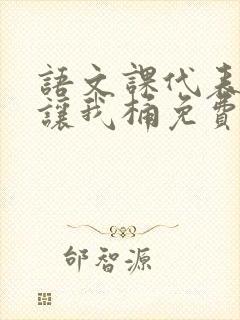 語文課代表
讓我桶免費
邰智源